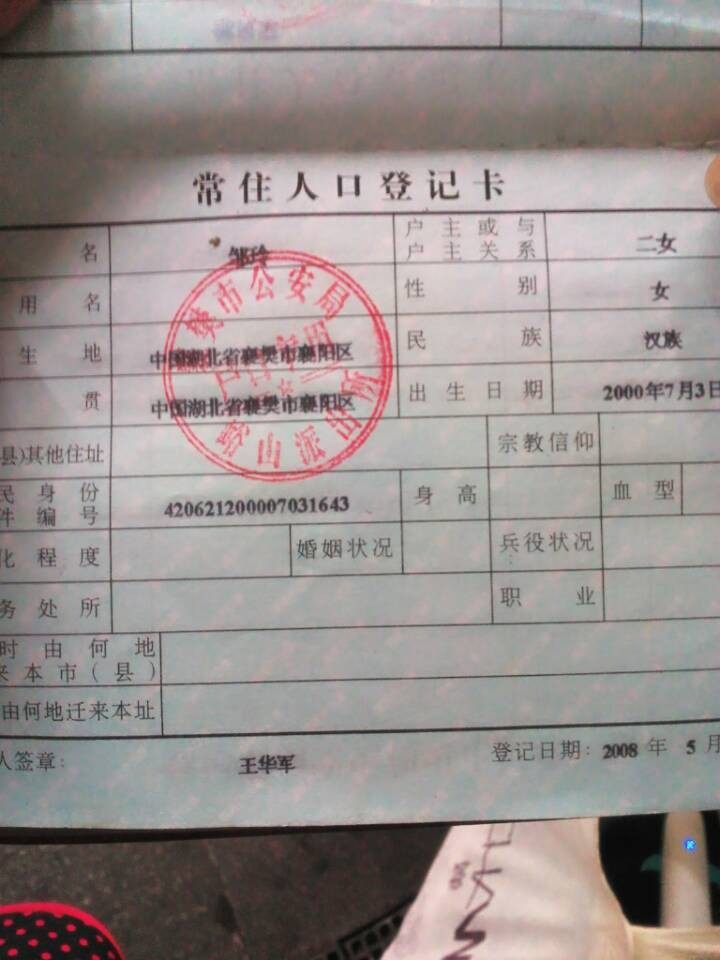 常住人口登记卡
名 邹玲 户主或与户主关系 二女
用名 性别 女
生地 中国湖北省襄樊市襄阳区 民族 汉族
贯 中国湖北省襄樊市襄阳区 出生日期 2000年7月3日
县)其他住址 宗教信仰
民身份件编号 420621200007031643 身高 血型
化程度 婚姻状况 兵役状况
务处所 职业
时由何地来本市(县)
由何地迁来本址
人签章: 王华军 登记日期: 2008年5月
市公安局
山派出所